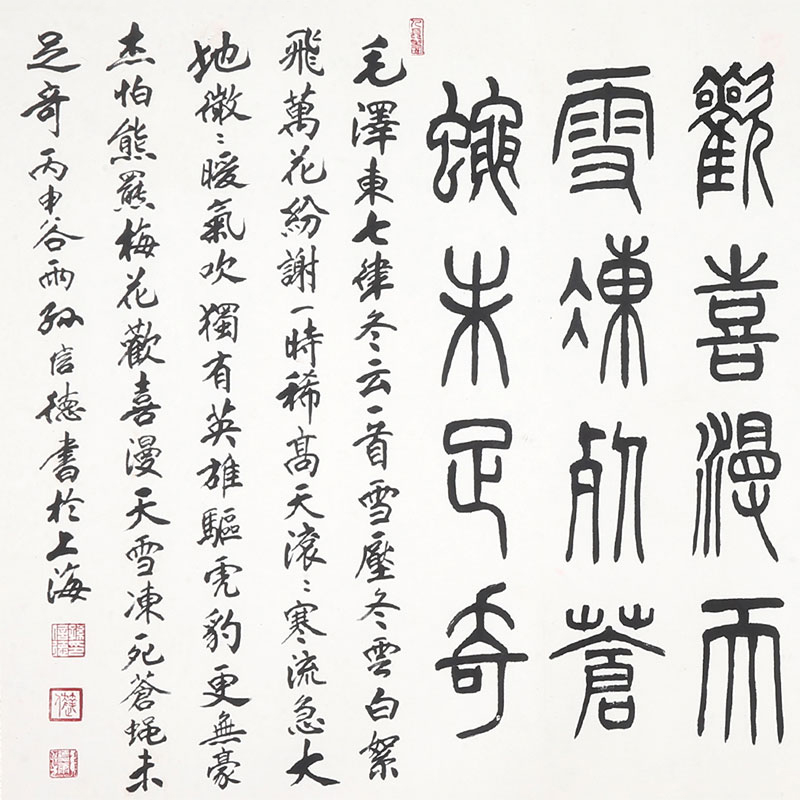 歡喜漫天
雪凍死蒼
蠅未足奇
毛澤東七律冬云一首雪壓冬雲白絮
飛萬花紛謝一時稀高天滾〻寒流急大
地微〻暖氣吹獨有英雄驅虎豹更無豪
杰怕熊羆梅花歡喜漫天雪凍死蒼蝇未
足奇丙申谷雨孙信德書於上海